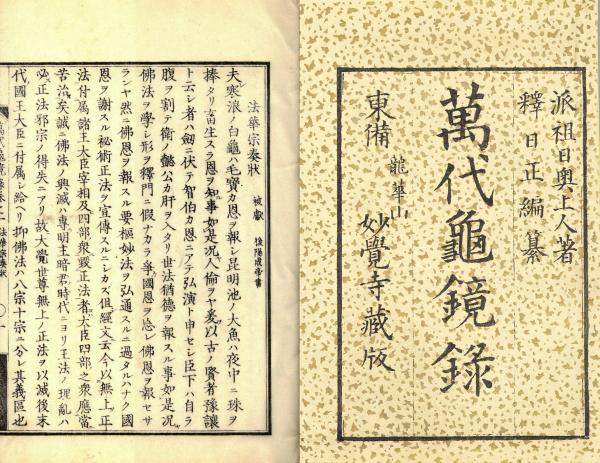 派祖日奧上人著
釋日正編纂
萬代龜鏡錄
龍華山
東備 妙覺寺藏版
法華宗奏狀
被獻 後陽成帝書
夫寒浪ノ白龜ハ毛寶カ恩ヲ報シ昆明池ノ大魚ハ夜中ニ珠ヲ
捧タリ畜生スラ恩ヲ知事如是况人倫ヲヤ爰以古ノ賢者豫讓
ト云シ者ハ劒ニ伏テ智伯カ恩ニアテ弘演ト申セシ臣下ハ自ラ
腹ヲ割テ衛ノ懿公カ肝ヲ入タリ世法猶德ヲ報スル事如是况
佛法ヲ學シ形ヲ釋門ニ假ナカラ爭國恩ヲ忘レ佛恩ヲ報セサ
ランヤ然ニ佛恩ヲ報スル要樞妙法ヲ弘通スルニ過タルハナク國
恩ヲ謝スル祕術正法ヲ宣傳スルニシカズ但經文云今以無上正
法付属諸王大臣宰相及四部衆毀正法者大臣四部之衆應當
苦治矣誠ニ佛法ノ興滅ハ專明王暗君時代ニヨリ王法ノ理亂ハ
必正法邪宗ノ得失ニアリ故大覺世尊無上ノ正法ヲ以滅後末
代國王大臣ニ付属シ給ヘリ抑佛法ハ八宗十宗ニ分レ其義區也
法華宗奏狀